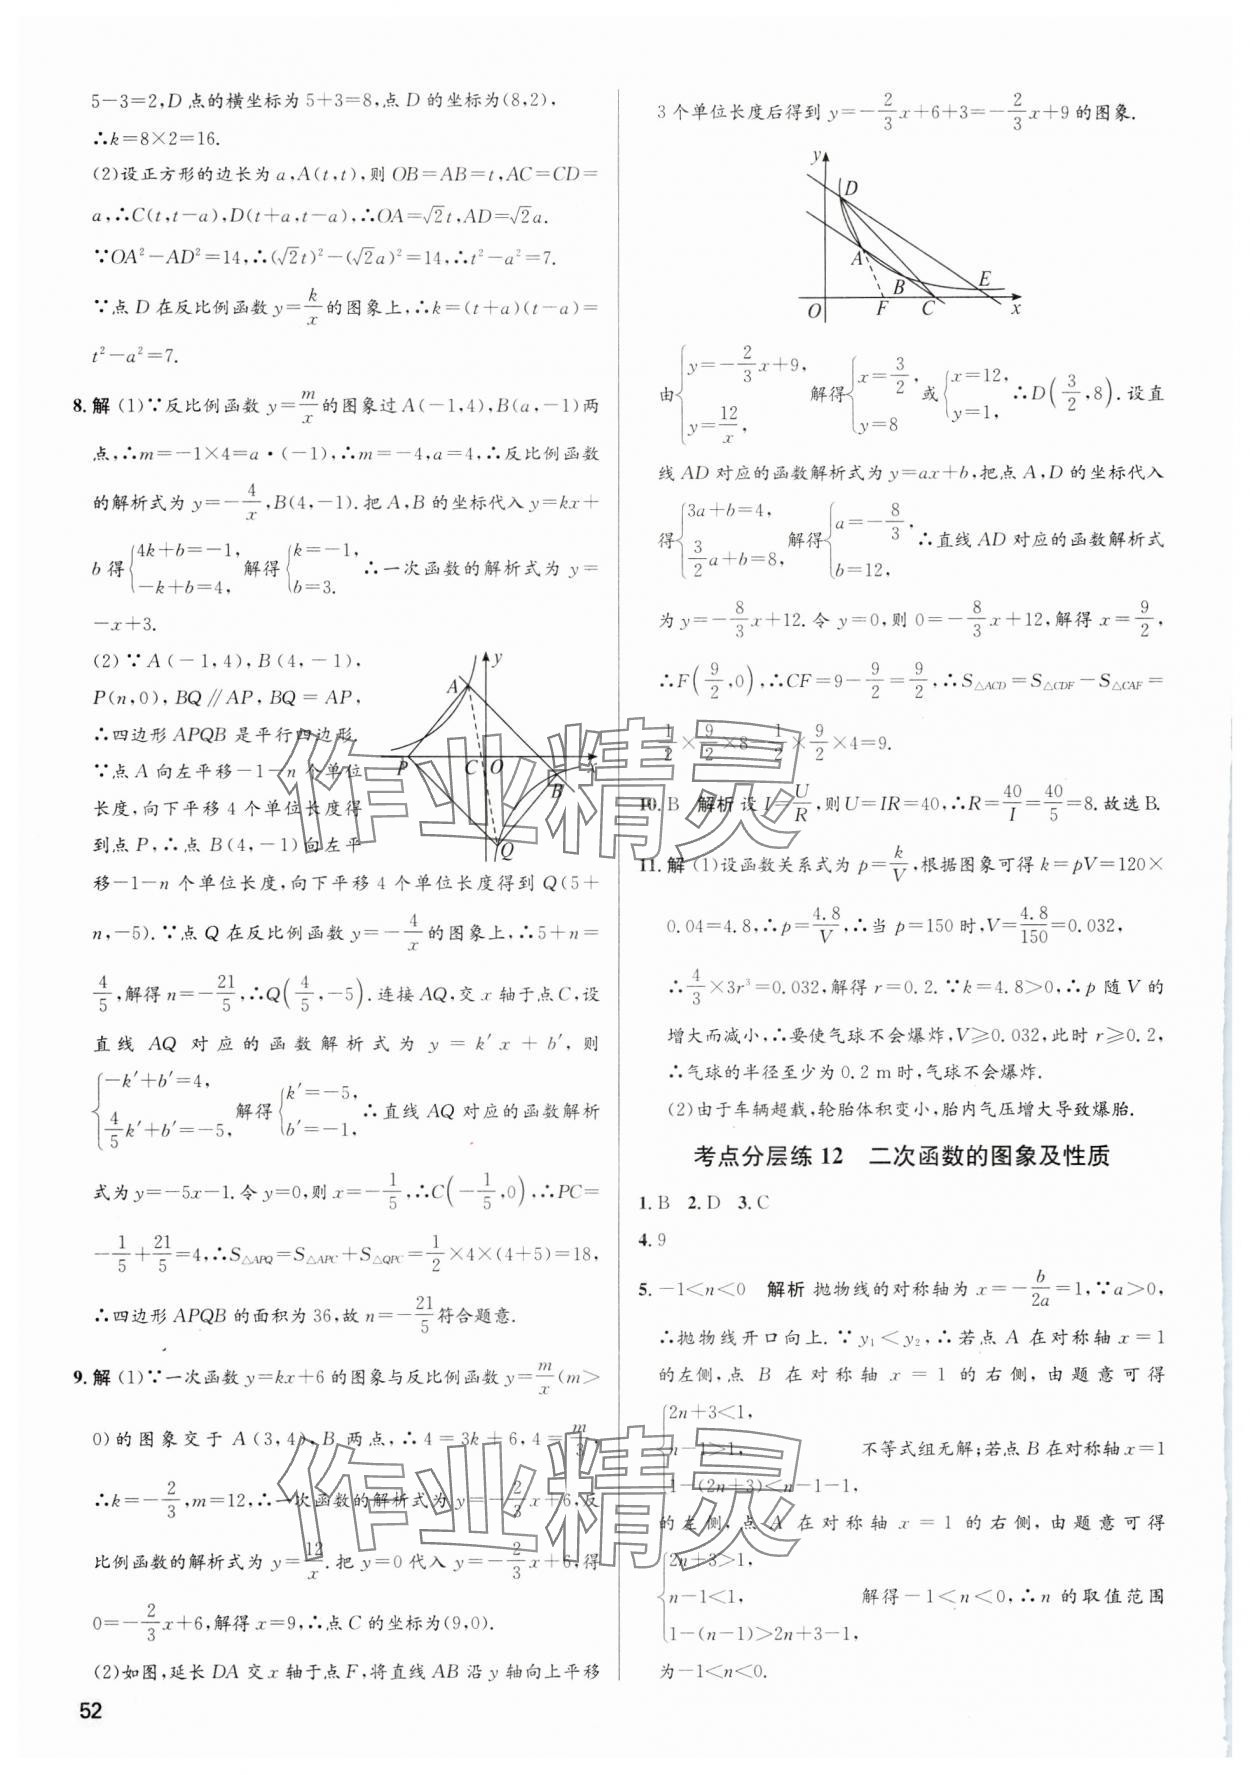 5－3＝2,D 点的横坐标为 5＋3＝8,点 D 的坐标为(8,2),
∴k＝8×2＝16.
(2)设正方形的边长为 a,A(t,t),则 OB＝AB＝t,AC＝CD＝
a,∴C(t,t－a),D(t＋a,t－a),∴OA＝√2t,AD＝√2a.
∵OA²－AD²＝14,∴(√2t)²－(√2a)²＝14,∴t²－a²＝7.
∵点 D 在反比例函数 y＝k/x 的图象上,∴k＝(t＋a)(t－a)＝
t²－a²＝7.
8.解 (1)∵反比例函数 y＝m/x 的图象过 A(－1,4),B(a,－1)两
点,∴m＝－1×4＝a·(－1),∴m＝－4,a＝4,∴反比例函数
的解析式为 y＝－4/x,B(4,－1).把 A,B 的坐标代入 y＝kx＋
b 得{4k＋b＝－1, －k＋b＝4, 解得{k＝－1, b＝3. ∴一次函数的解析式为 y＝
－x＋3.
(2)∵A(－1,4),B(4,－1),
P(n,0),BQ∥AP,BQ＝AP,
∴四边形 APQB 是平行四边形.
∵点 A 向左平移－1－n 个单位
长度,向下平移 4 个单位长度得
到点 P,∴点 B(4,－1)向左平
A y P C O x B Q
移－1－n 个单位长度,向下平移 4 个单位长度得到 Q(5＋
n,－5).∵点 Q 在反比例函数 y＝－4/x 的图象上,∴5＋n＝
4/5,解得 n＝－21/5,∴Q(4/5,－5).连接 AQ,交 x 轴于点 C,设
直线 AQ 对应的函数解析式为 y＝k′x＋b′,则
{－k′＋b′＝4, 4/5k′＋b′＝－5, 解得{k′＝－5, b′＝－1, ∴直线 AQ 对应的函数解析
式为 y＝－5x－1.令 y＝0,则 x＝－1/5,∴C(－1/5,0),∴PC＝
－1/5＋21/5＝4,∴S△APQ＝S△APC＋S△QPC＝1/2×4×(4＋5)＝18,
∴四边形 APQB 的面积为 36,故 n＝－21/5符合题意.
9.解 (1)∵一次函数 y＝kx＋6 的图象与反比例函数 y＝m/x(m＞
0)的图象交于 A(3,4),B 两点,∴4＝3k＋6,4＝m/3,
∴k＝－2/3,m＝12,∴一次函数的解析式为 y＝－2/3x＋6,反
比例函数的解析式为 y＝12/x.把 y＝0 代入 y＝－2/3x＋6,得
0＝－2/3x＋6,解得 x＝9,∴点 C 的坐标为(9,0).
(2)如图,延长 DA 交 x 轴于点 F,将直线 AB 沿 y 轴向上平移
52
3 个单位长度后得到 y＝－2/3x＋6＋3＝－2/3x＋9 的图象.
y D A B E O F C x
由{y＝－2/3x＋9, y＝12/x, 解得{x＝3/2, y＝8 或{x＝12, y＝1, ∴D(3/2,8).设直
线 AD 对应的函数解析式为 y＝ax＋b,把点 A,D 的坐标代入
得{3a＋b＝4, 3/2a＋b＝8, 解得{a＝－8/3, b＝12, ∴直线 AD 对应的函数解析式
为 y＝－8/3x＋12.令 y＝0,则 0＝－8/3x＋12,解得 x＝9/2,
∴F(9/2,0),∴CF＝9－9/2＝9/2,∴S△ACD＝S△CDF－S△CAF＝
1/2×9/2×8－1/2×9/2×4＝9.
10.B 解析 设 I＝U/R,则U＝IR＝40,∴R＝40/I＝40/5＝8.故选 B.
11.解 (1)设函数关系式为 p＝k/V,根据图象可得 k＝pV＝120×
0.04＝4.8,∴p＝4.8/V,∴当 p＝150 时,V＝4.8/150＝0.032,
∴4/3×3r³＝0.032,解得 r＝0.2.∵k＝4.8＞0,∴p 随 V 的
增大而减小,∴要使气球不会爆炸,V≥0.032,此时 r≥0.2,
∴气球的半径至少为 0.2 m 时,气球不会爆炸.
(2)由于车辆超载,轮胎体积变小,胎内气压增大导致爆胎.
考点分层练 12 二次函数的图象及性质
1.B 2.D 3.C
4.9
5.－1＜n＜0 解析 抛物线的对称轴为 x＝－b/2a＝1,∵a＞0,
∴抛物线开口向上.∵y₁＜y₂,∴若点 A 在对称轴 x＝1
的左侧,点 B 在对称轴 x＝1 的右侧,由题意可得
{2n＋3＜1, n－1＞1, 1－(2n＋3)＜n－1－1, 不等式组无解;若点 B 在对称轴 x＝1
的左侧,点 A 在对称轴 x＝1 的右侧,由题意可得
{2n＋3＞1, n－1＜1, 1－(n－1)＞2n＋3－1, 解得－1＜n＜0,∴n 的取值范围
为－1＜n＜0.
作业精灵
作业精灵